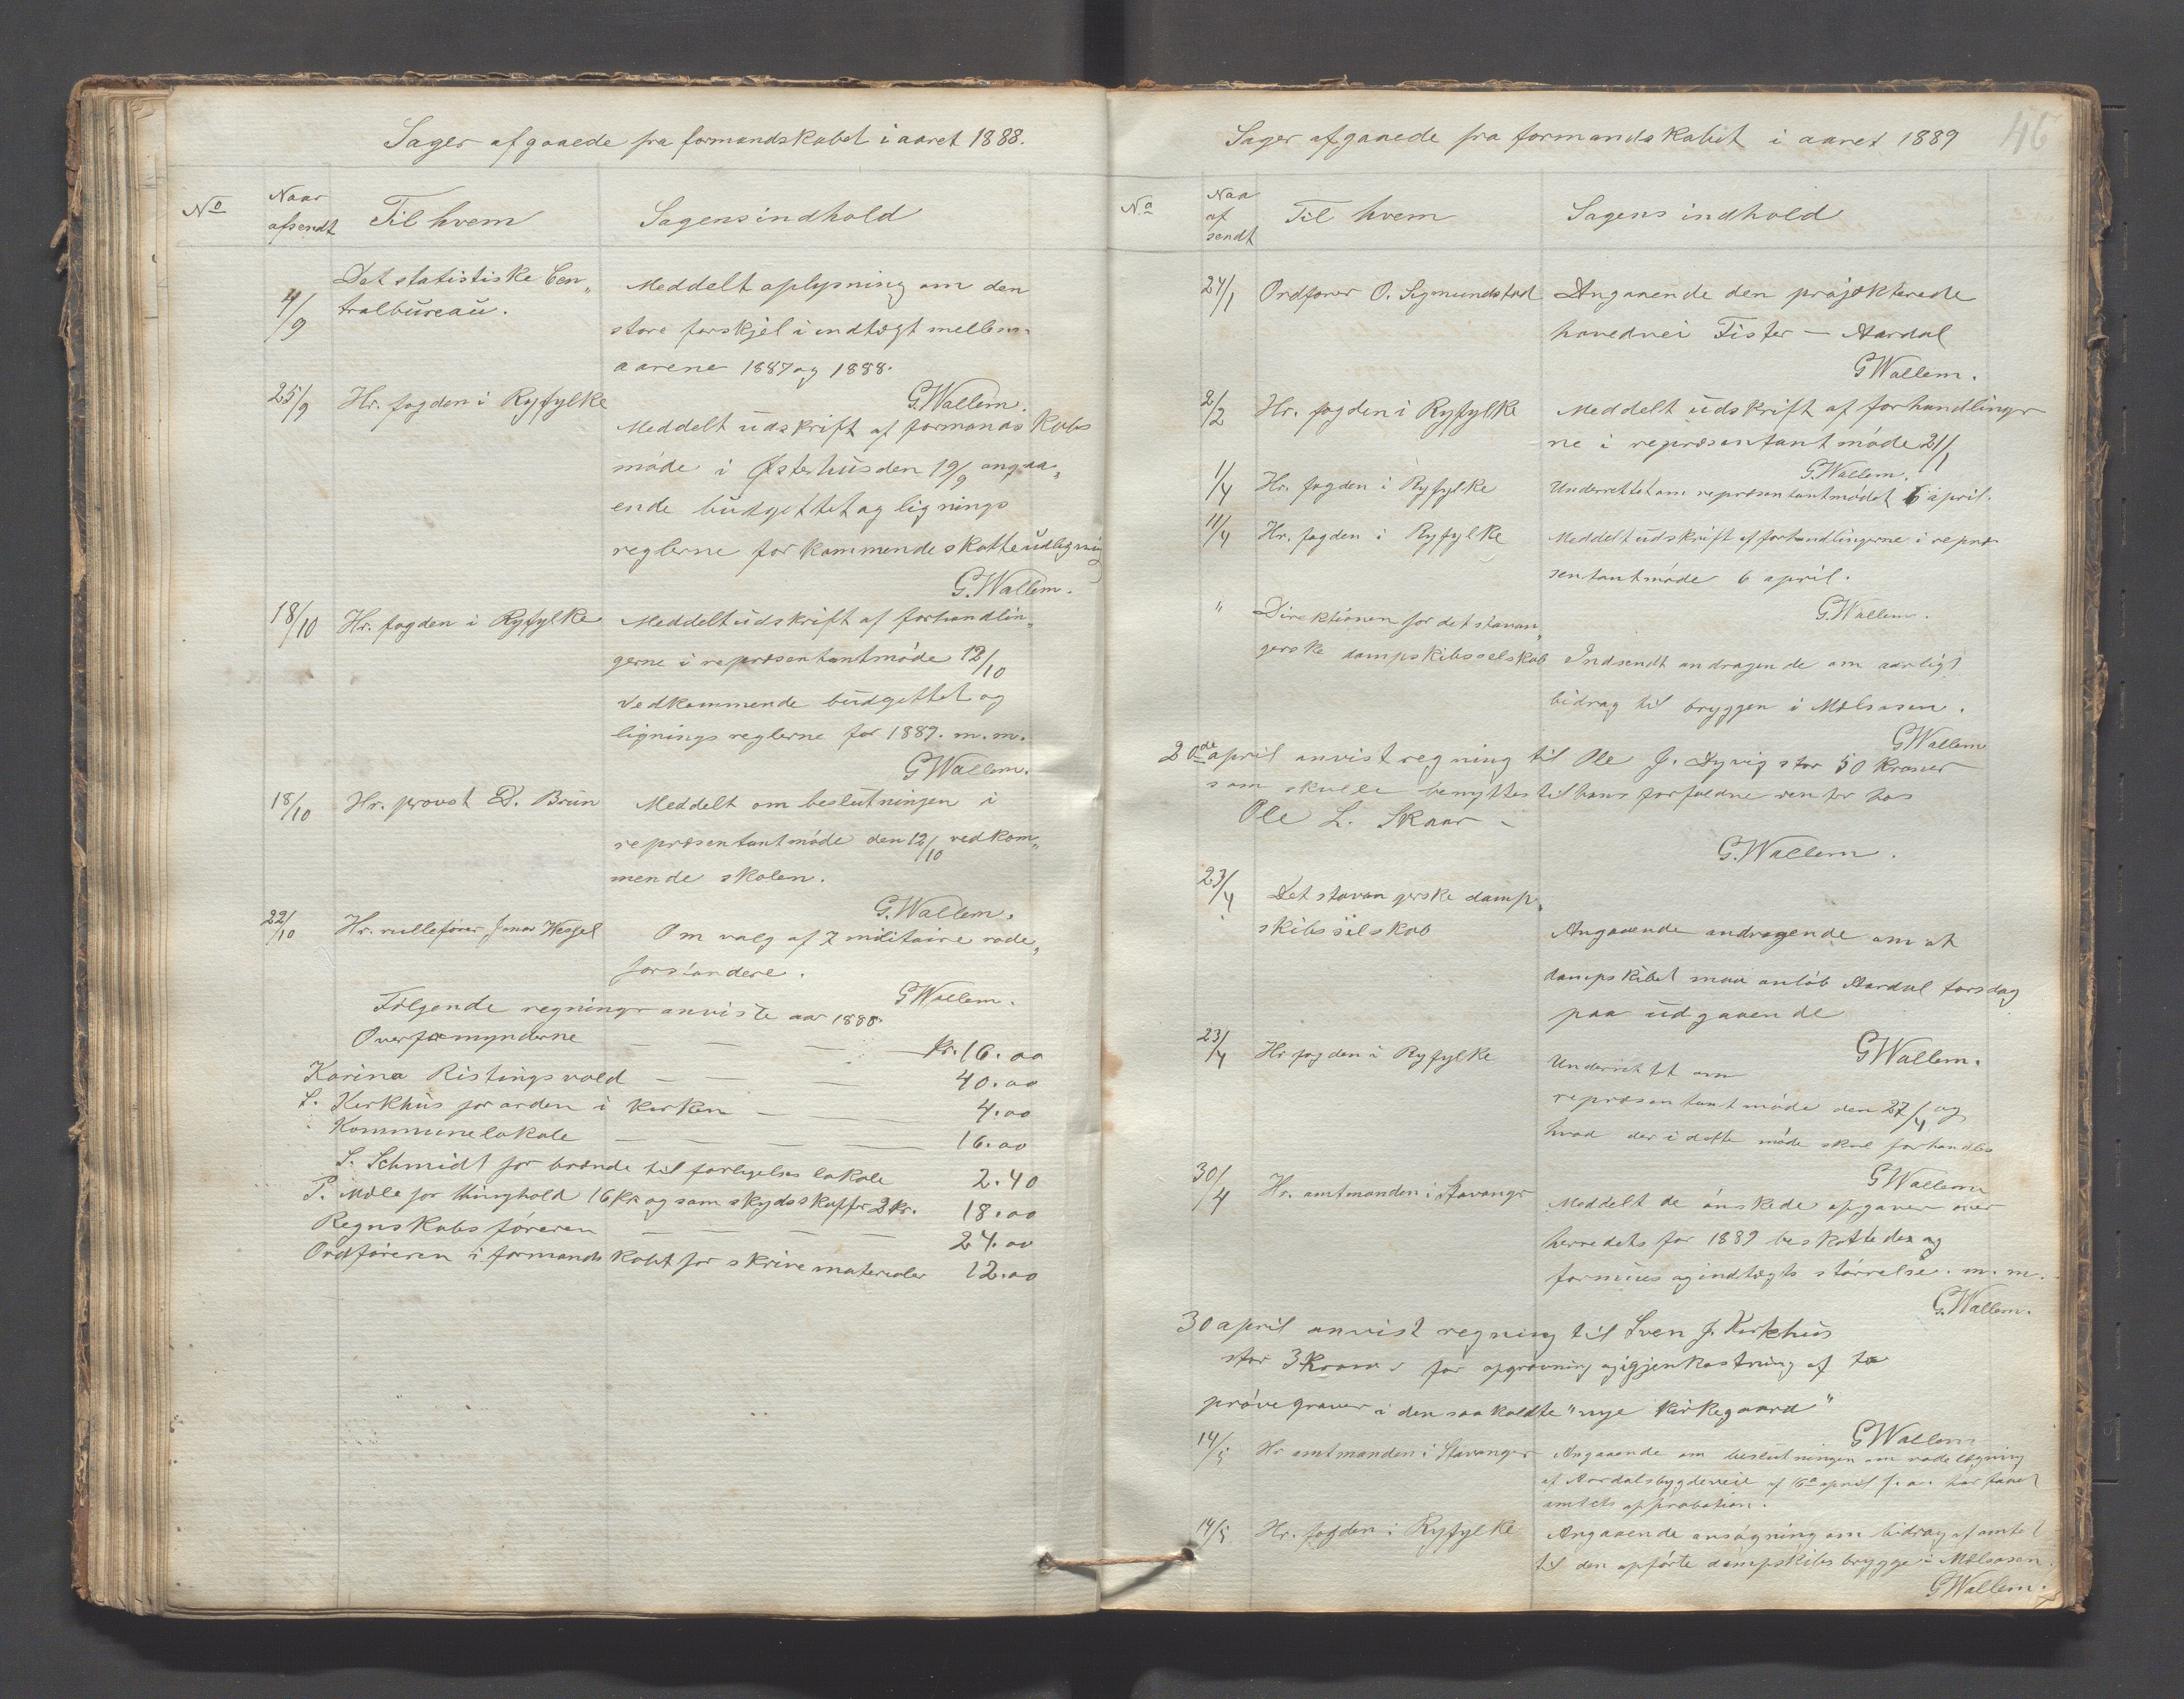 Sager afgaaede fra formandskabet i aaret 1888.
No
Naar
afsendt
Til hvem
Sagens indhold
4/9
Det statistiske Cen„
tralbureau.
Meddelt oplysning om den
store forskjel i indtægt mellem
aarene 1887 og 1888.
G. Wallem.
25/9
Hr. fogden i Ryfylke
Meddelt udskrift af formandskabs
møde i Østerhus den 19/9 angaa„
ende budgettet og lignings
reglerne for kommende skatteudligning
G. Wallem.
18/10
Hr. fogden i Ryfylke
Meddelt udskrift af forhandlin„
gerne i repræsentantmøde 12/10
vedkommende budgettet og
ligningsreglerne for 1889. m.m.
G Wallem.
18/10
Hr. provst D. Brun
Meddelt om beslutningen i
repræsentantmøde den 12/10 vedkom„
mende skolen.
G. Wallem.
22/10
Hr. rullefører Jonas Wessel
Om valg af 7 militaire rode„
forstandere.
G Wallem.
Følgende regninger anviste aar 1888.
Overformynderne — — — Kr. 16.00
Karina Ristingsvold — — — 40.00
S. Kirkhus for orden i kirken — — 4.00
Kommunelokale — — — — 16.00
S. Schmidt for brænde til forligelses lokale 2.40
P. Mæle for thinghold 16 kr og som skydsskaffer 2 kr. 18.00
Regnskabsføreren — — — — 24.00
Ordføreren i formandskabet for skrivematerialer 12.00
46
Sager afgaaede fra formandskabet i aaret 1889
No
Naa
af
sendt
Til hvem
Sagens indhold
24/1
Ordfører O. Sigmundstad
Angaaende den projekterede
hovedvei Fister — Aardal
G Wallem.
2/2
Hr. fogden i Ryfylke
Meddelt udskrift af forhandlinger
ne i repræsentantmøde 21/1
G. Wallem.
1/4
Hr. fogden i Ryfylke
Underrettet om repræsentantmødet 6 april.
11/4
Hr. fogden i Ryfylke
Meddelt udskrift af forhandlingerne i repræ
sentantmøde 6 april.
G. Wallem.
"
Direktionen for det stavan„
gerske dampskibsselskab
Indsendt andragende om aarligt
bidrag til bryggen i Mælsosen.
G Wallem
20de april anvist regning til Ole J. Dyvig stor 50 kroner
som skulle benyttes til hans forfaldne renter hos
Ole L. Skaar –
G. Wallem.
23/4
Det stavangerske damp„
skibsselskab
Angaaende andragende om at
dampskibet maa anløb Aardal torsdag
paa udgaaende
G Wallem.
23/4
Hr fogden i Ryfylke
Underrettet om
repræsentantmøde den 27/4 og
hvad der i dette møde skal forhandles
G Wallem
30/4
Hr. amtmanden i Stavanger
Meddelt de ønskede opgaver over
herredets for 1889 beskattedes og
formues og indtægts størrelse. m. m.
G. Wallem.
30 april anvist regning til Sven J. Kirkhus
stor 3 kroner for opgravning og igjenkastning af to
prøvegraver i den saa kaldte "nye kirkegaard"
G Wallem
14/5
Hr amtmanden i Stavanger
Angaaende om beslutningen om rodelægning
af Aardalsbygdeveie af 6te april f. a. har faaet
amtets approbation.
14/5
Hr. fogden i Ryfylke
Angaaende ansøgning om bidrag af amtet
til den opførte dampskibs brygge i Mælsosen.
G Wallem.